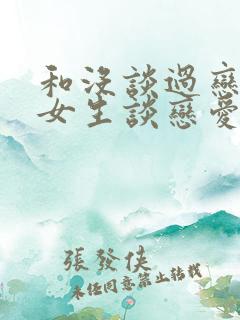 和沒談過戀
女生談戀愛
張發俠
未任同意禁止轉載